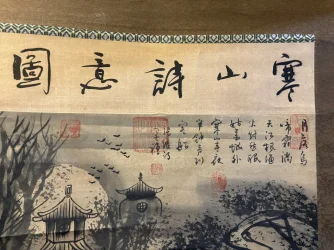 寒山詩意圖
月落烏
啼霜滿
天江楓漁
火對愁眠
姑蘇城外
寒山寺夜
半鐘聲到
客船